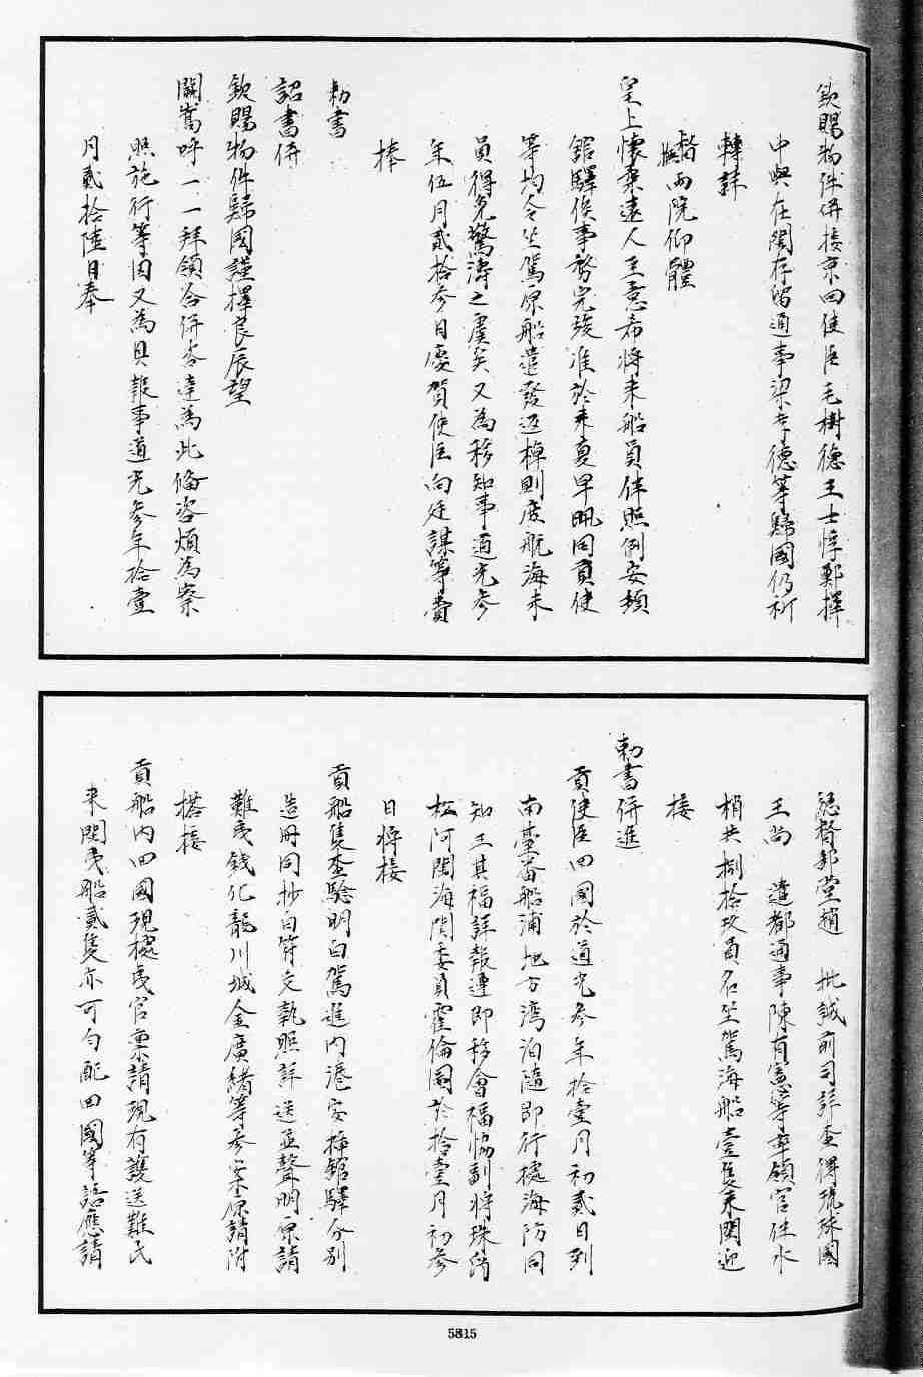 欽賜物件併接京回使臣毛樹德王士惇鄭擇
中與在閩存留通事梁孝德等歸國仍祈
轉詳
督撫兩院仰體
皇上懷柔遠人至意希將来船員伴照例安頓
館驛俟事務完竣准於来夏早颿同貢使
等均令坐駕原船遣發返棹則庶航海末
員得免驚濤之虞矣又為移知事道光參
年伍月貳拾參日慶賀使臣向廷謀等賫
捧
勅書
詔書併
欽賜物件歸國謹擇良辰望
闕嵩呼一一拜領合併咨達為此備咨煩為察
照施行等因又為具報事道光參年拾壹
月貳拾陸日奉
總督部堂趙 批誠前司詳查得琉球國
王尚 遣都通事陳有憲等率領官伴水
梢共捌拾玖員名坐駕海船壹隻来閩迎
接
勅書併進
貢使臣回國於道光參年拾壹月初貳日到
南臺番船浦地方灣泊隨即行據海防同
知王其福詳報遵即移會福協副將珠爾
松阿閩海關委員霍倫圖於拾壹月初參
日將接
貢船隻查驗明白駕進内港安揷館驛分別
造册同抄白符文執照詳送並聲明原請
難夷錢化龍川城金廣緒等參案原請附
搭接
貢船内回國現據夷官稟請現有護送難民
来閩夷船貳隻亦可勻配回國等語應請
5815